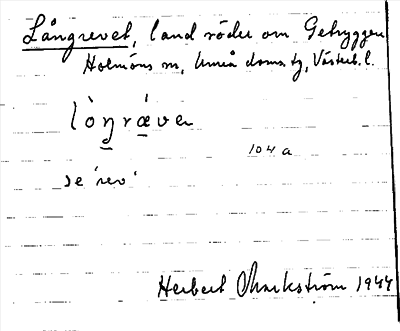 Långrevet, land söder om Getryggen
Holmöns sn, Umeå doms. tg, Västerb. l.
lòŋrǽven
104 a
se 'rev'
Herbert Markström 1944